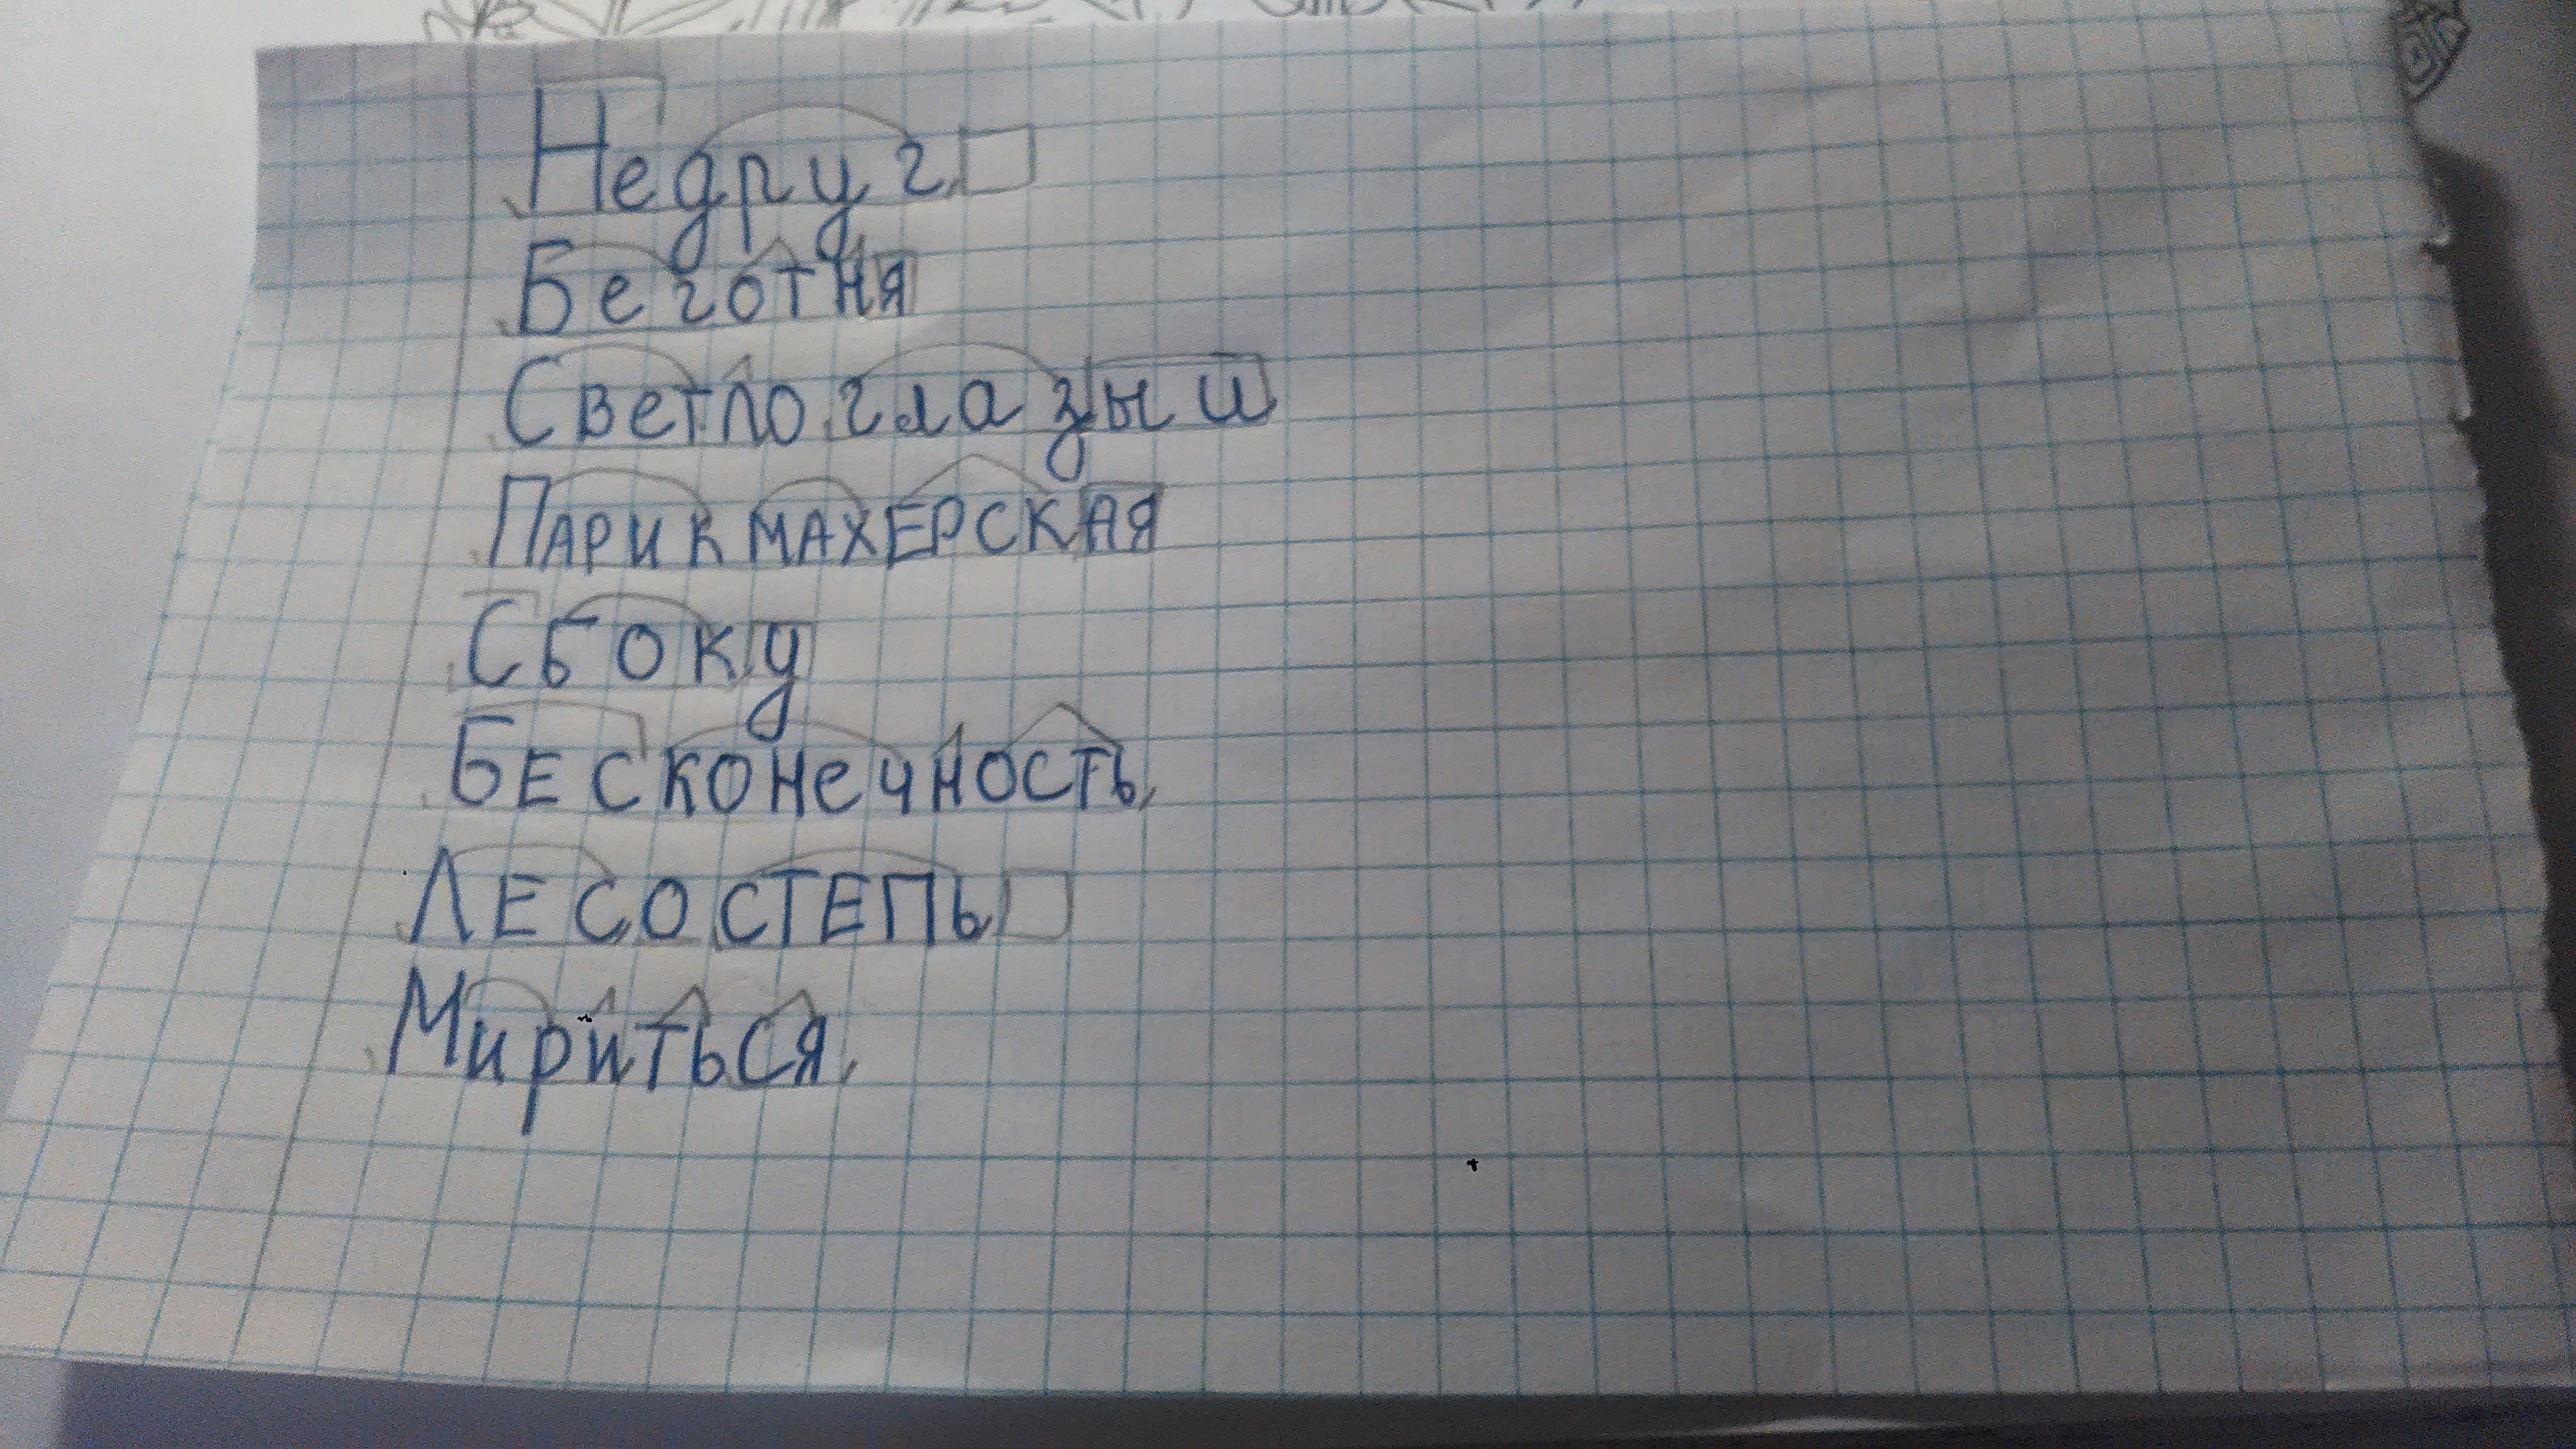 Недруг
Беготня
Светлоглазый
Парикмахерская
Сбоку
Бесконечность
Лесостепь
Мириться